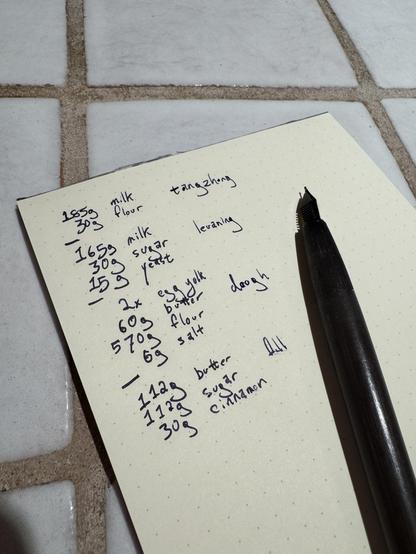 185g milk tangzhong
30g flour
—
165g milk levaning
30g sugar
15g yeast
—
2x egg yolk dough
60g butter
570g flour
6g salt
—
112g butter fill
112g sugar
30g cinnamon